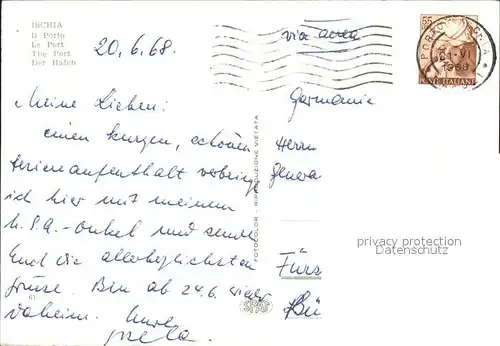 ISCHIA
Il Porto
Le Port
The Port
Der Hafen
20.6.68.
via aerea
55
POSTE ITALIANE
1968
Meine Lieben:
Germania
einen kurzen, schönen
Herrn
Ferienaufenthalt verbringe
Genera
ich hier mit meinem
U.S.A.-Onkel und sende
Euch die allerherzlichsten
Fürs
Grüsse. Bin ab 24.6. wieder
daheim. Eure
FOTOCOLOR - RIPRODUZIONE VIETATA
61
privacy protection
Datenschutz